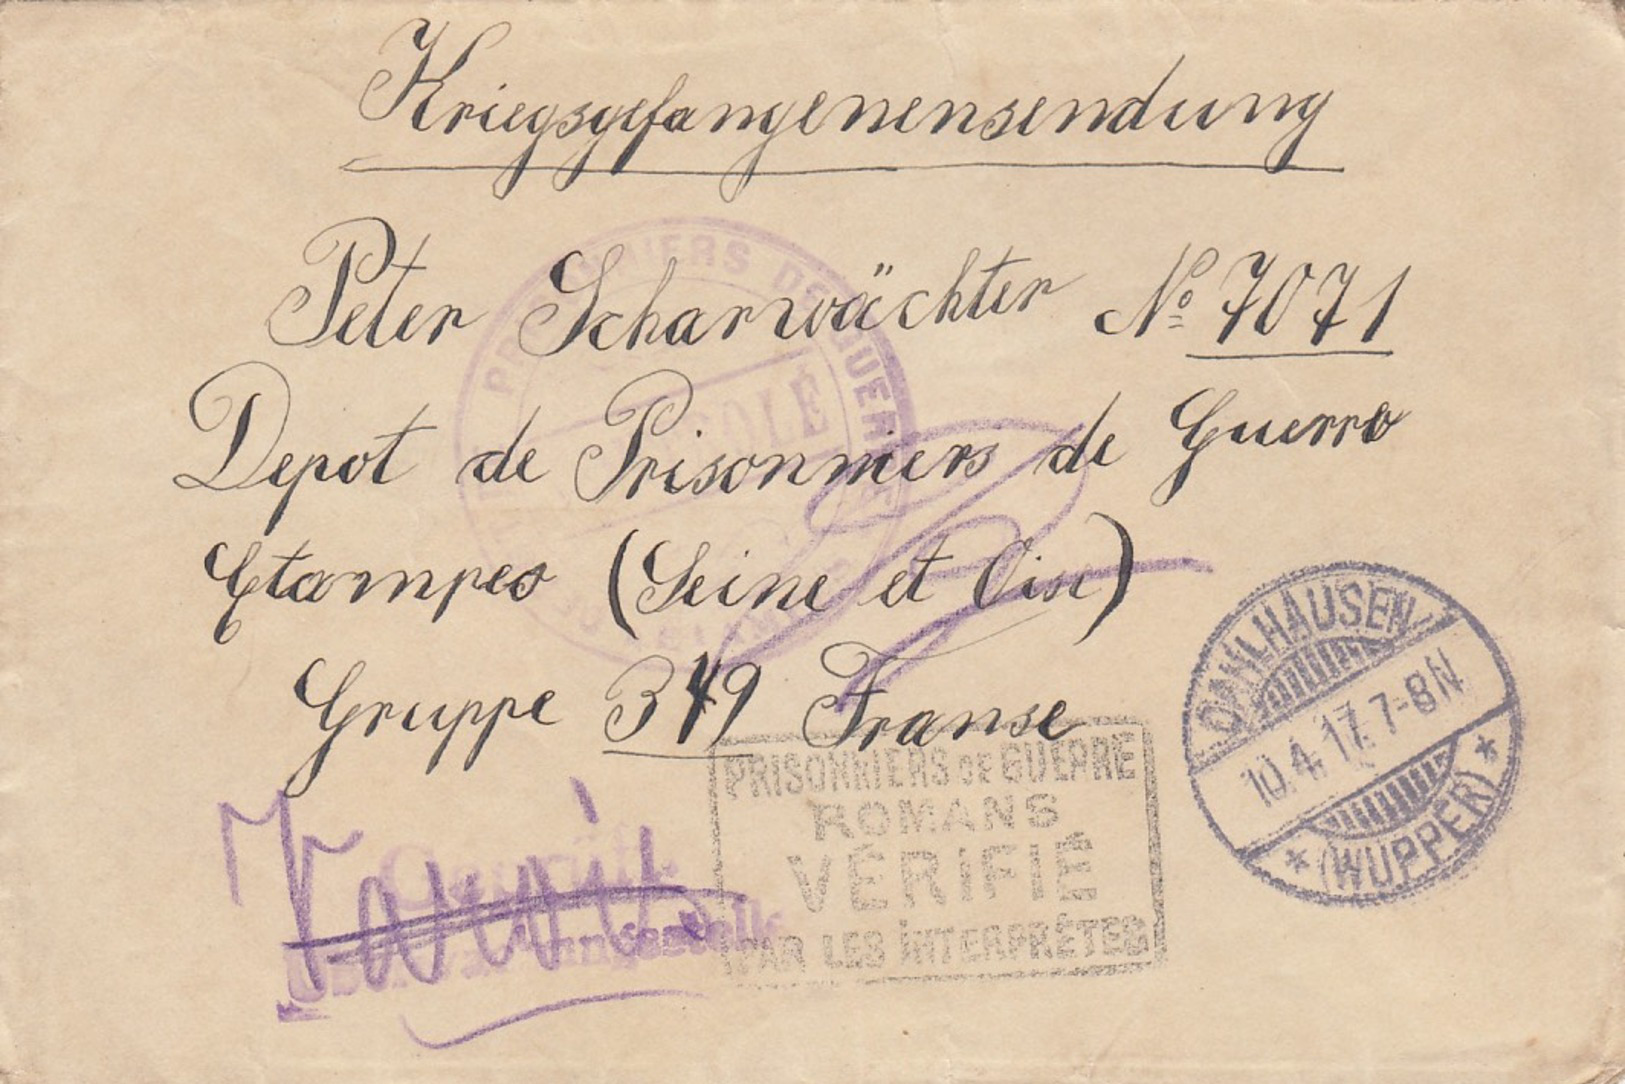 Kriegsgefangenensendung
Peter Scharwächter No 7071
Depot de Prisonniers de Guerre
Etampes (Seine et Oise)
Gruppe 349 Franse
PRISONNIERS DE GUERRE
DAHLHAUSEN
10.4.17.7-8N.
* (WUPPER) *
PRISONNIERS DE GUERRE
ROMANS
VÉRIFIÉ
PAR LES INTERPRÈTES